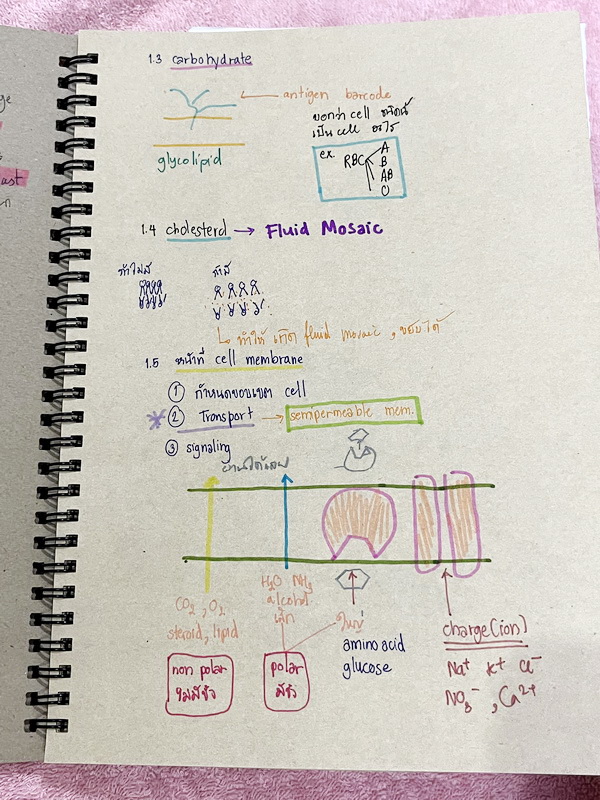 ge
ast
1.3 carbohydrate
antigen barcode
บอกว่า cell ชนิดนี้
เป็น cell อะไร
glycolipid
ex.
RBC
A
B
AB
O
1.4 cholesterol → Fluid Mosaic
ถ้าไม่มี
ถ้ามี
ทำให้ เกิด fluid mosaic , ขยับได้
1.5 หน้าที่ cell membrane
① กำหนดขอบเขต cell
② Transport → semipermeable mem.
③ signaling
ผ่านได้เลย
CO2 , O2
steroid, lipid
H2O NH3
alcohol
เล็ก
ใหญ่
amino acid
glucose
charge(ion)
Na+ K+ Cl-
NO3- , Ca2+
non polar
ไม่มีขั้ว
polar
มีขั้ว